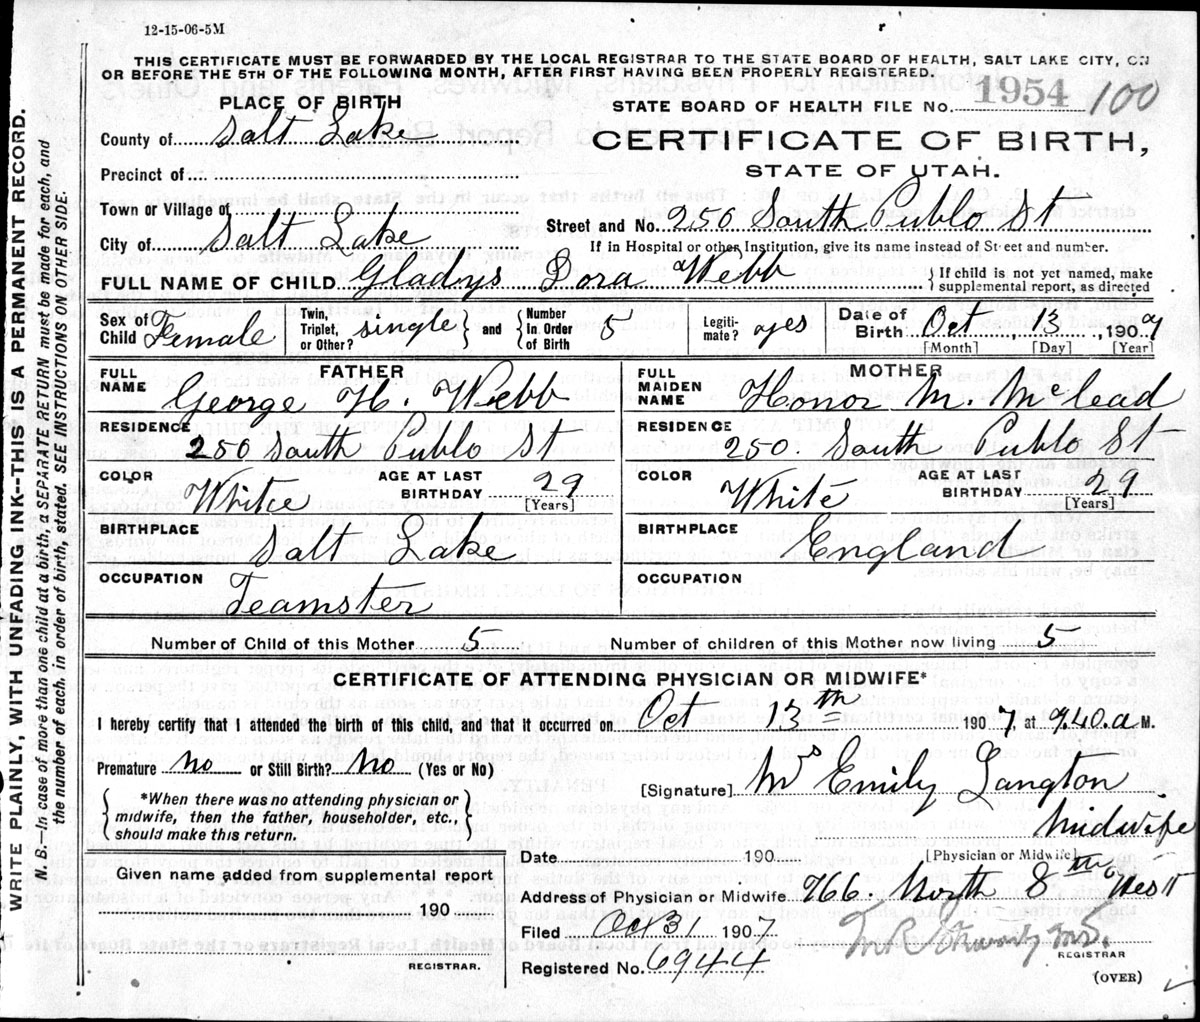 12-15-06-5M
THIS CERTIFICATE MUST BE FORWARDED BY THE LOCAL REGISTRAR TO THE STATE BOARD OF HEALTH, SALT LAKE CITY, ON
OR BEFORE THE 5TH OF THE FOLLOWING MONTH, AFTER FIRST HAVING BEEN PROPERLY REGISTERED.
PLACE OF BIRTH
STATE BOARD OF HEALTH FILE No. 1954 100
County of Salt Lake
CERTIFICATE OF BIRTH,
STATE OF UTAH.
Precinct of
Town or Village of
Street and No. 250 South Publo St
City of Salt Lake
If in Hospital or other Institution, give its name instead of Street and number.
FULL NAME OF CHILD Gladys Dora Webb
{If child is not yet named, make
supplemental report, as directed
Sex of Child Female
Twin, Triplet, or Other? single and Number In Order of Birth 5
Legiti-mate? yes
Date of Birth Oct, 13, 1907
[Month] [Day] [Year]
FATHER
FULL NAME George H. Webb
RESIDENCE 250 South Publo St
COLOR White
AGE AT LAST BIRTHDAY 29 [Years]
BIRTHPLACE Salt Lake
OCCUPATION Teamster
MOTHER
FULL MAIDEN NAME Honor M. McLead
RESIDENCE 250. South Publo St
COLOR White
AGE AT LAST BIRTHDAY 29 [Years]
BIRTHPLACE England
OCCUPATION
Number of Child of this Mother 5
Number of children of this Mother now living 5
CERTIFICATE OF ATTENDING PHYSICIAN OR MIDWIFE*
I hereby certify that I attended the birth of this child, and that it occurred on Oct 13th 1907 at 9.40.a M.
Premature No or Still Birth? No (Yes or No)
[Signature] Mrs Emily Langton
Midwife
[Physician or Midwife]
{*When there was no attending physician or
midwife, then the father, householder, etc.,
should make this return.}
Given name added from supplemental report
190
REGISTRAR.
Date 190
Address of Physician or Midwife 766 North 8th West
Filed Oct 31 1907
Registered No. 6944
REGISTRAR
(OVER)
WRITE PLAINLY, WITH UNFADING INK--THIS IS A PERMANENT RECORD.
N. B.—In case of more than one child at a birth, a SEPARATE RETURN must be made for each, and
the number of each, in order of birth, stated. SEE INSTRUCTIONS ON OTHER SIDE.